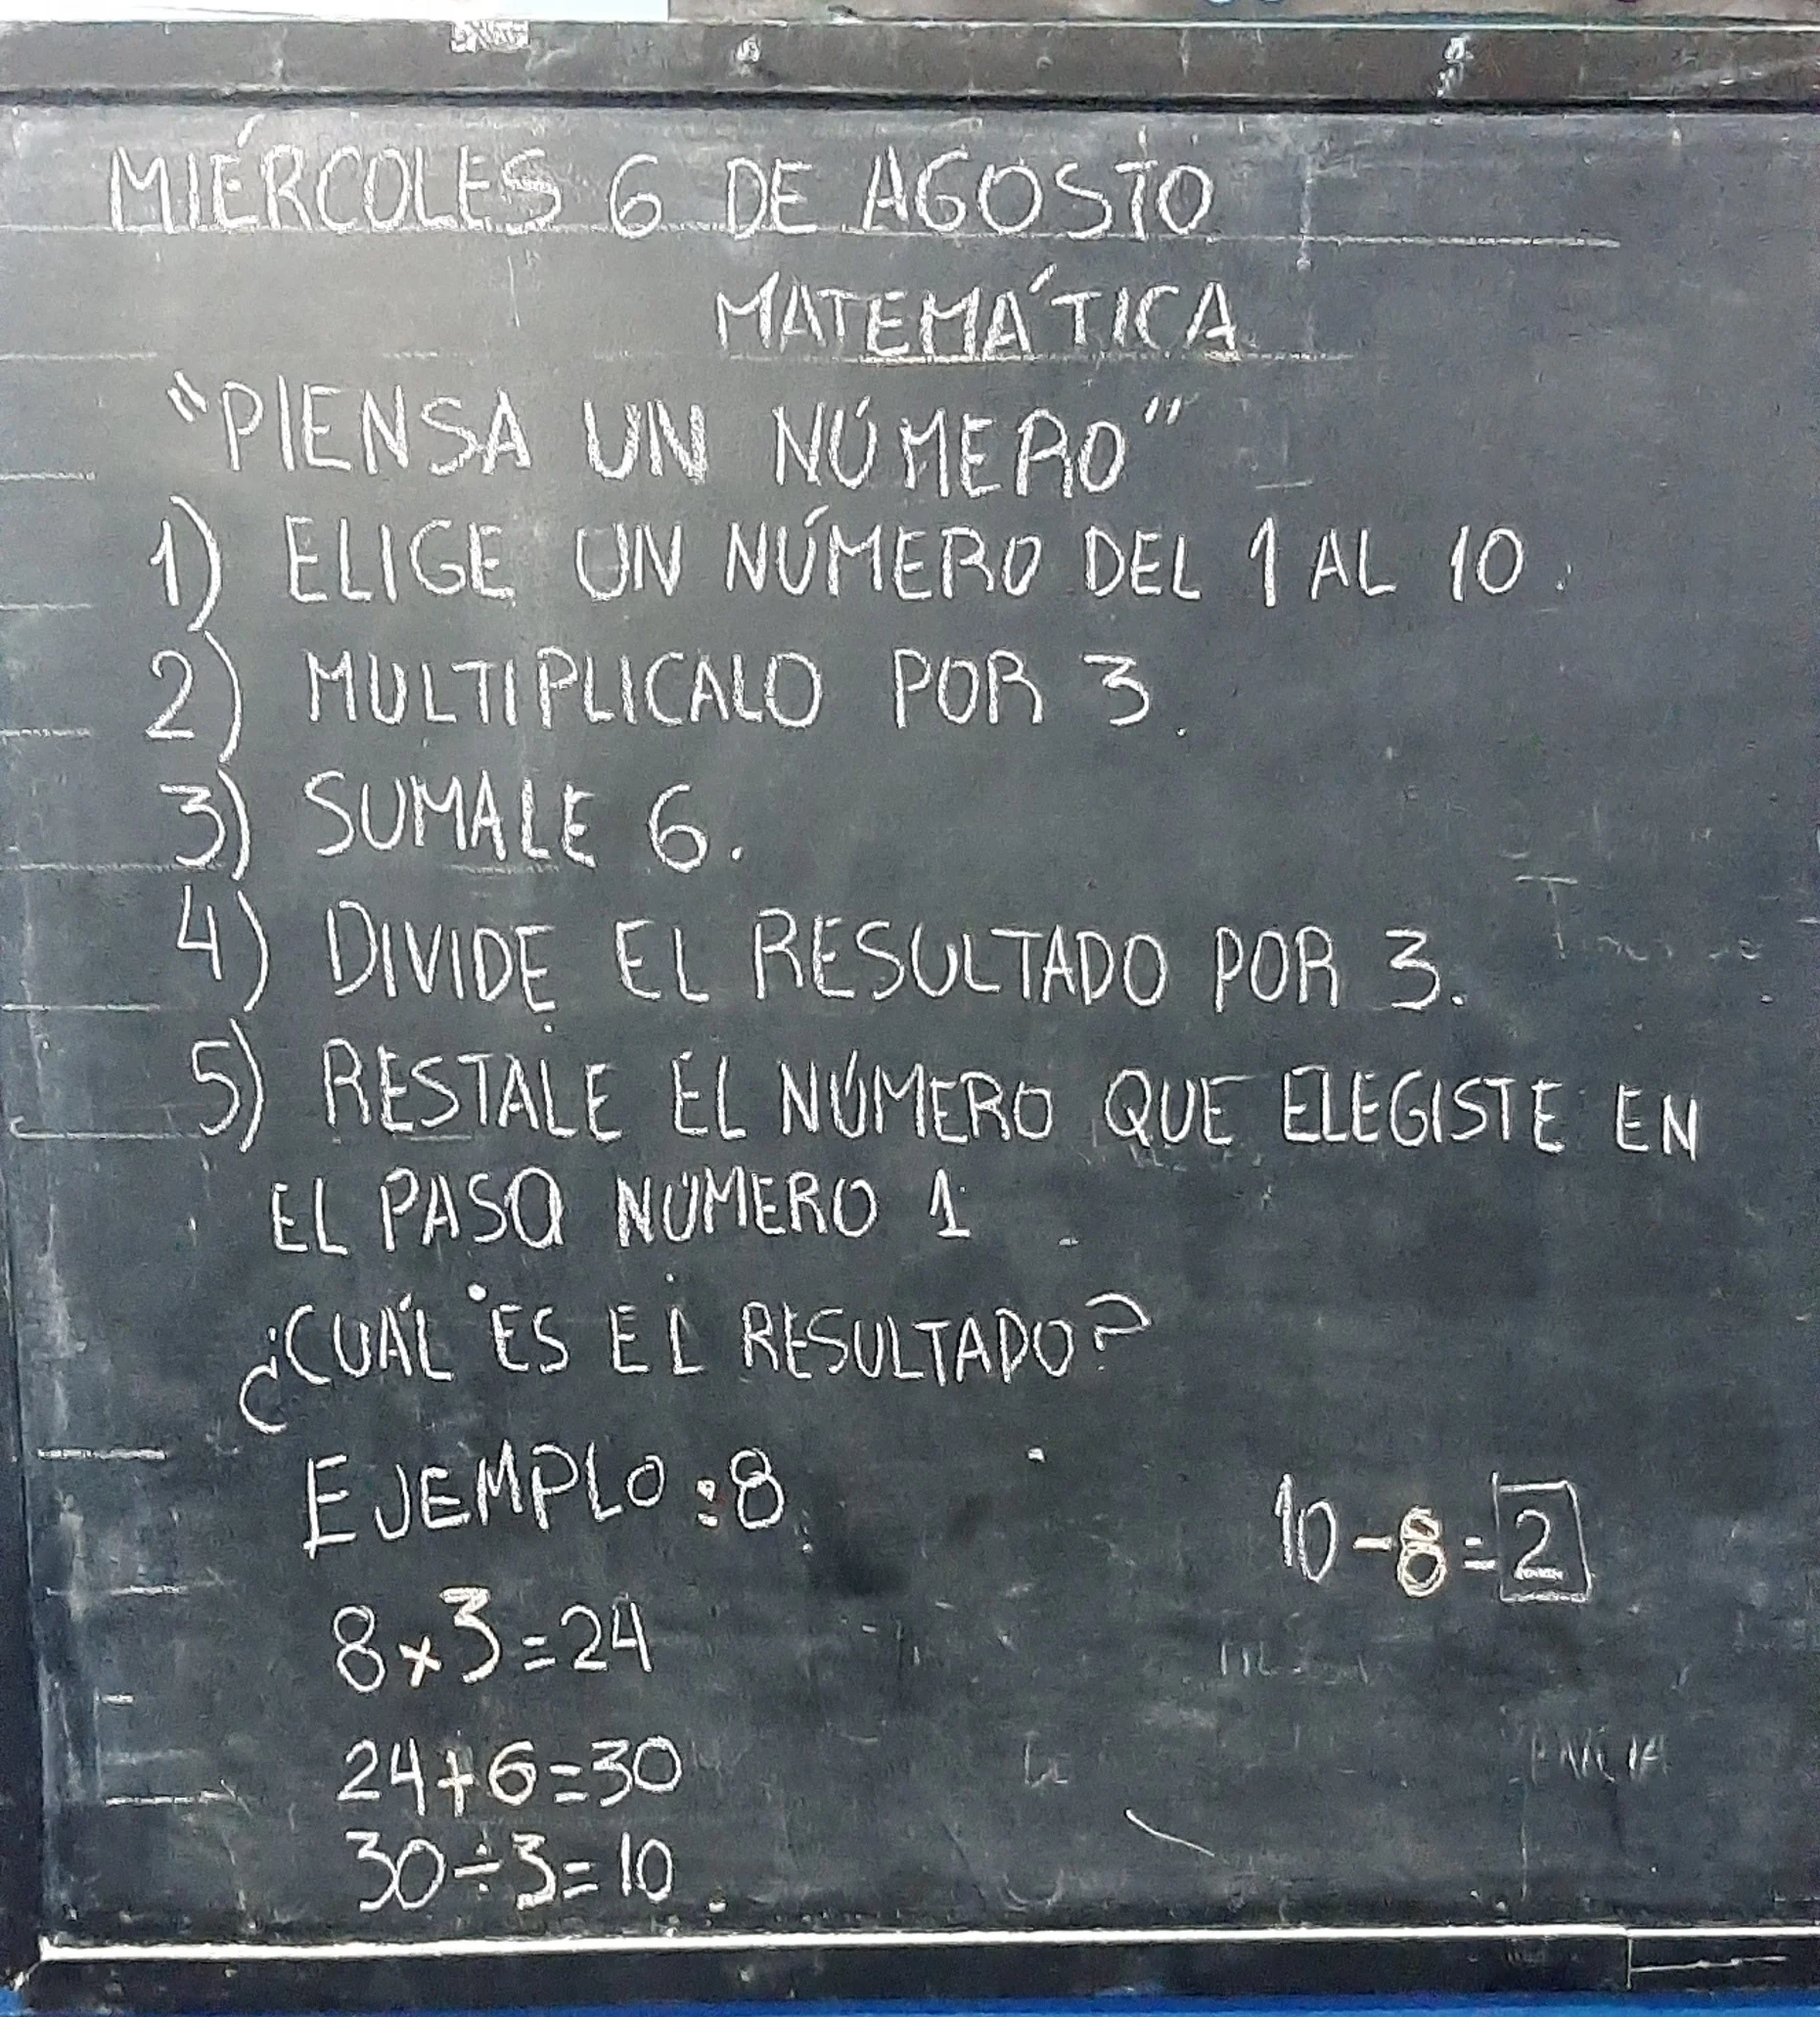 MIÉRCOLES 6 DE AGOSTO
MATEMÁTICA
"PIENSA UN NÚMERO"
1) ELIGE UN NÚMERO DEL 1 AL 10.
2) MULTIPLICALO POR 3.
3) SUMALE 6.
4) DIVIDE EL RESULTADO POR 3.
5) RESTALE EL NÚMERO QUE ELEGISTE EN
EL PASO NÚMERO 1.
¿CUÁL ES EL RESULTADO?
EJEMPLO:8
8x3=24
24+6=30
30÷3=10
10-8=2